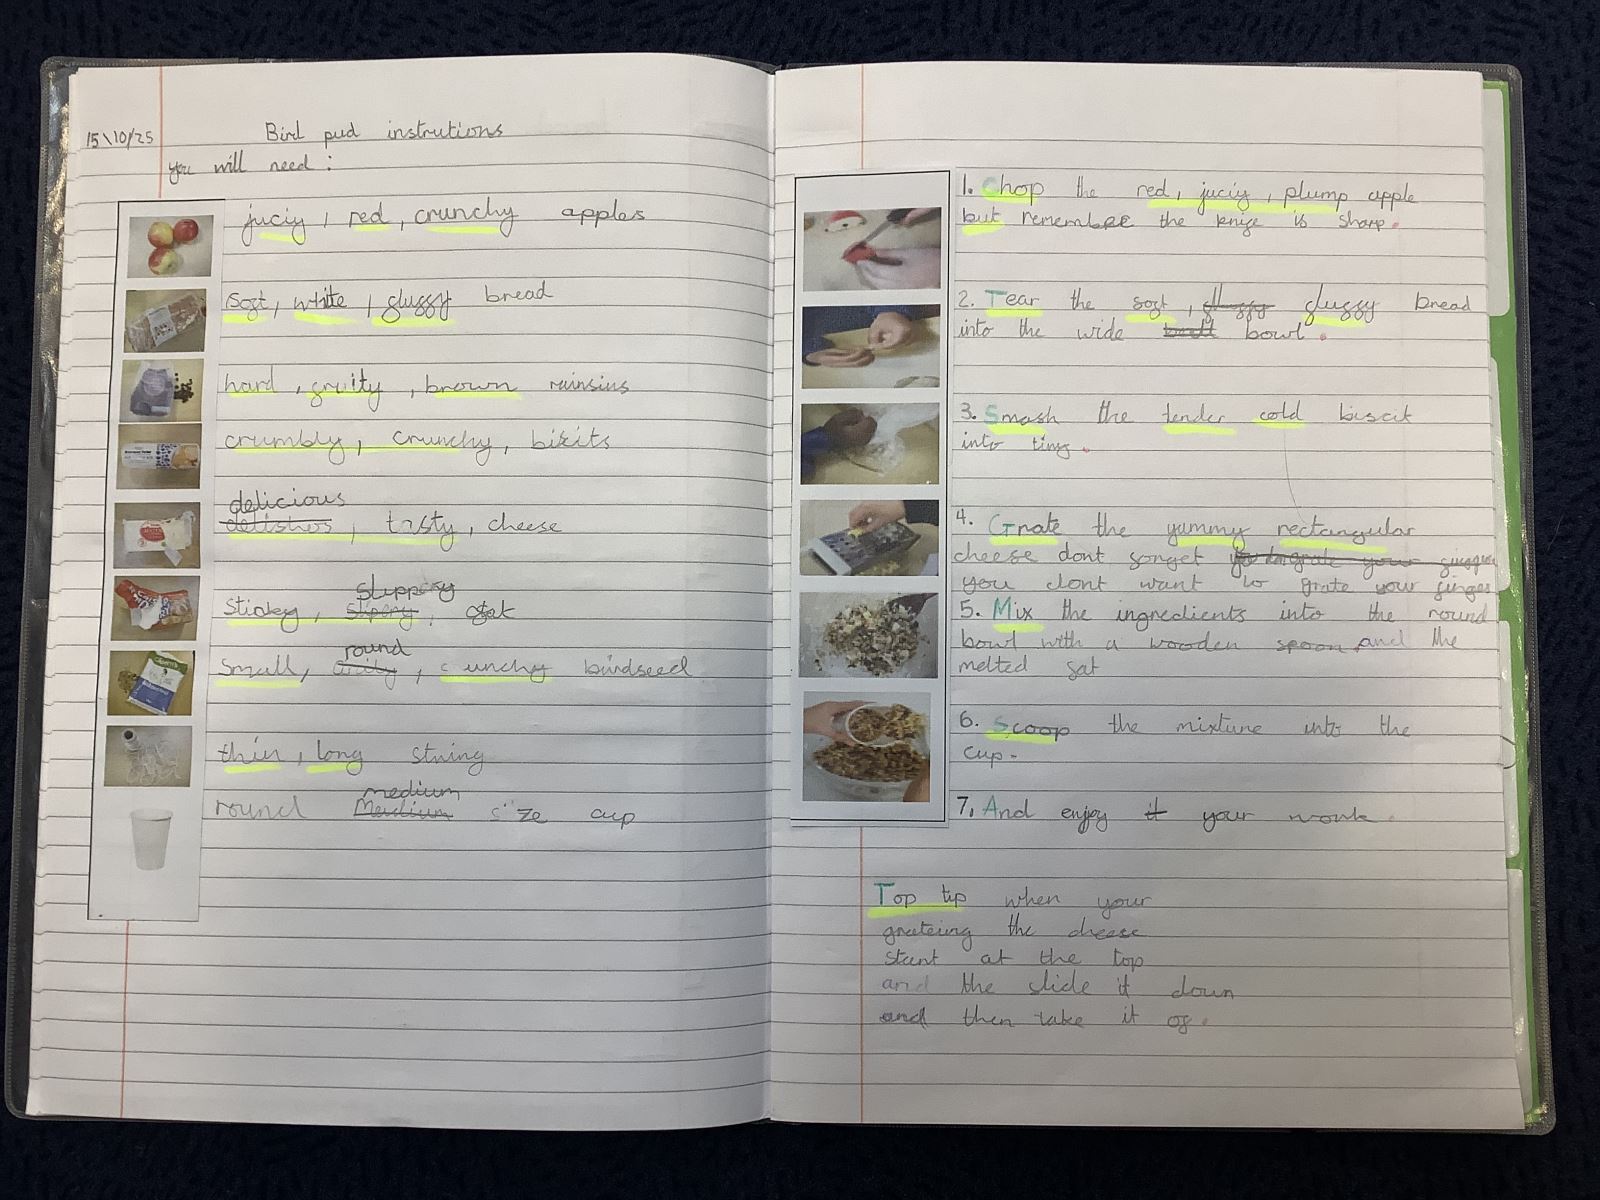 15\10/25 Bird pud instrutions
you will need :
juciy, red, crunchy apples
Soft, white, fluffy bread
hard, fruity, brown rainsins
crumbly, crunchy, bikits
delicious
delishos, tasty, cheese
slippery
Stinkey, slipery, fat
round
Small, crunchy birdseed
thin, long string
medium
round Meudium size cup
1. Chop the red, juciy, plump apple
but remember the knife is sharp.
2. Tear the soft, fluffy fluffy bread
into the wide bowl.
3. Smash the tender cold biscit
into tiny.
4. Grate the yummy rectangular
cheese dont forget grate your
you dont want to grate your finges
5. Mix the ingredients into the round
bowl with a wooden spoon and the
melted fat
6. Scoop the mixture into the
cup.
7. And enjoy it your work.
Top tip when your
grateing the cheese
start at the top
and the slide it down
and then take it of.